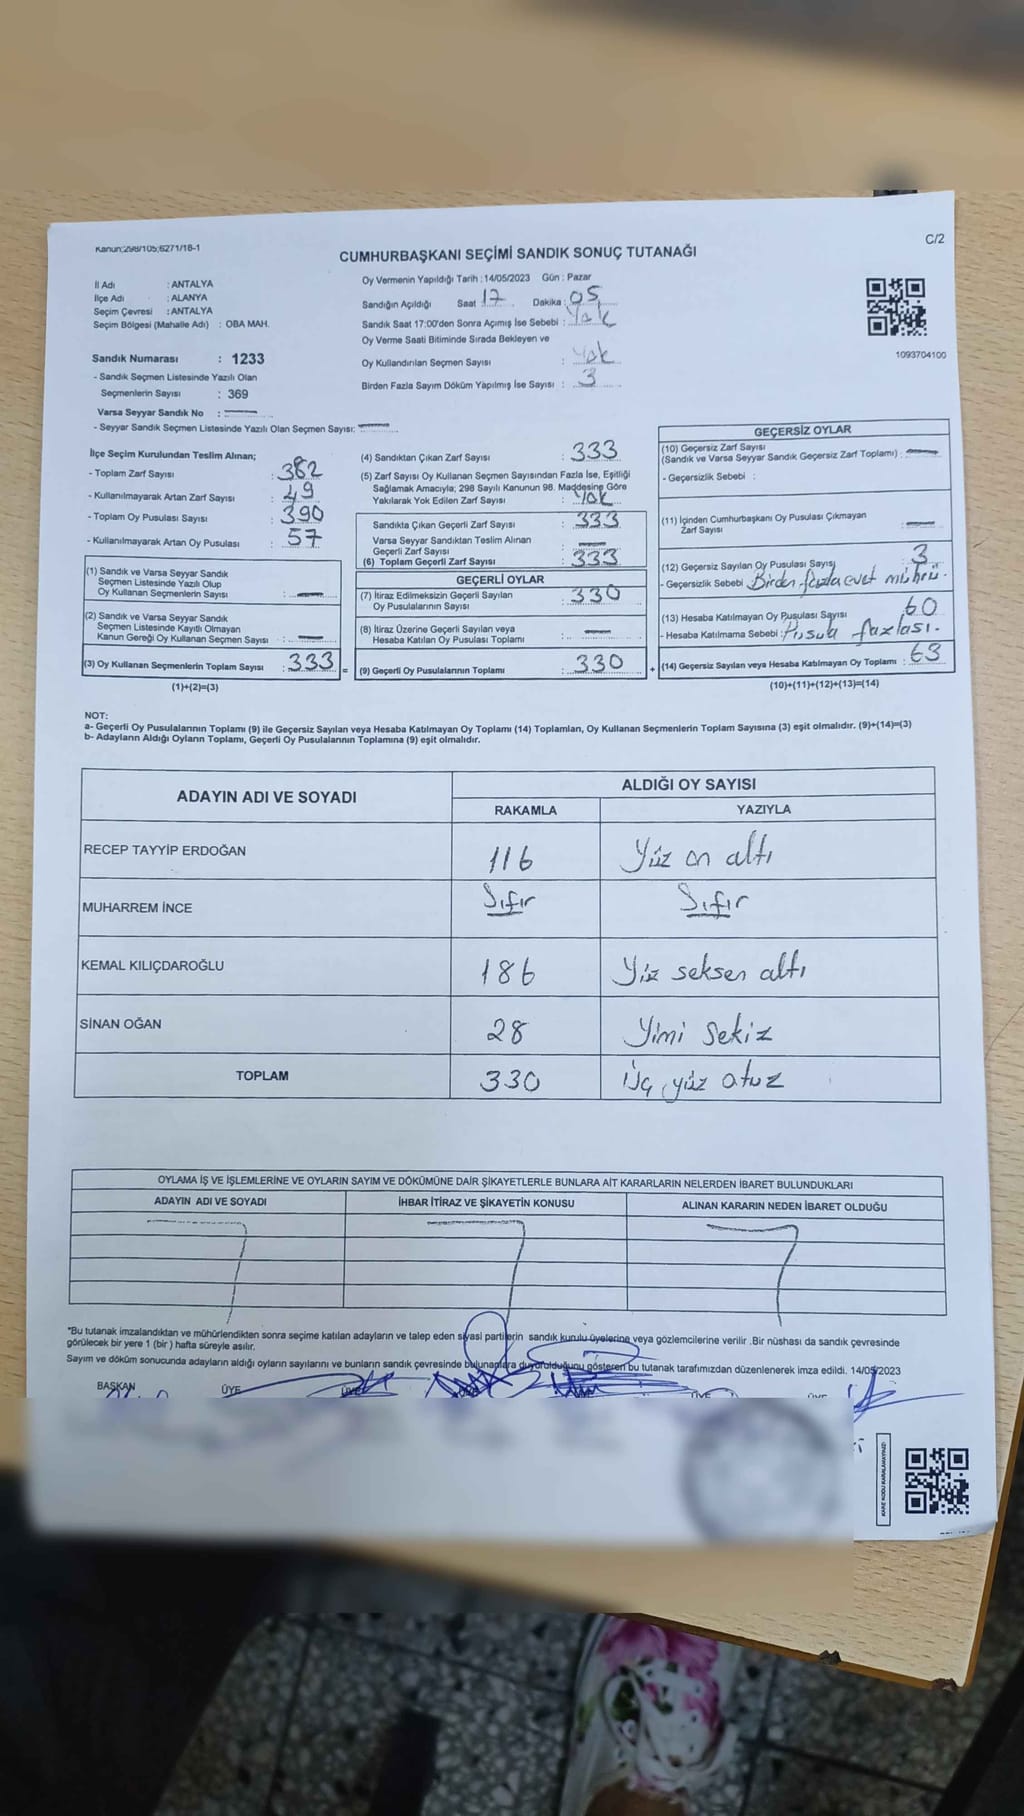 Kanun:298/105;6271/18-1
C/2
CUMHURBAŞKANI SEÇİMİ SANDIK SONUÇ TUTANAĞI
İl Adı : ANTALYA
İlçe Adı : ALANYA
Seçim Çevresi : ANTALYA
Seçim Bölgesi (Mahalle Adı) : OBA MAH.
Sandık Numarası : 1233
- Sandık Seçmen Listesinde Yazılı Olan
Seçmenlerin Sayısı : 369
Varsa Seyyar Sandık No :
- Seyyar Sandık Seçmen Listesinde Yazılı Olan Seçmen Sayısı:
Oy Vermenin Yapıldığı Tarih : 14/05/2023 Gün : Pazar
Sandığın Açıldığı Saat 17 Dakika : 05
Sandık Saat 17:00'den Sonra Açımış İse Sebebi : Yok
Oy Verme Saati Bitiminde Sırada Bekleyen ve
Oy Kullandırılan Seçmen Sayısı : Yok
Birden Fazla Sayım Döküm Yapılmış İse Sayısı : 3
1093704100
İlçe Seçim Kurulundan Teslim Alınan;
- Toplam Zarf Sayısı : 382
- Kullanılmayarak Artan Zarf Sayısı : 49
- Toplam Oy Pusulası Sayısı : 390
- Kullanılmayarak Artan Oy Pusulası : 57
(1) Sandık ve Varsa Seyyar Sandık
Seçmen Listesinde Yazılı Olup
Oy Kullanan Seçmenlerin Sayısı :
(2) Sandık ve Varsa Seyyar Sandık
Seçmen Listesinde Kayıtlı Olmayan
Kanun Gereği Oy Kullanan Seçmen Sayısı :
(3) Oy Kullanan Seçmenlerin Toplam Sayısı : 333 =
(1)+(2)=(3)
(4) Sandıktan Çıkan Zarf Sayısı : 333
(5) Zarf Sayısı Oy Kullanan Seçmen Sayısından Fazla İse, Eşitliği
Sağlamak Amacıyla; 298 Sayılı Kanunun 98. Maddesine Göre
Yakılarak Yok Edilen Zarf Sayısı : Yok
Sandıkta Çıkan Geçerli Zarf Sayısı : 333
Varsa Seyyar Sandıktan Teslim Alınan
Geçerli Zarf Sayısı :
(6) Toplam Geçerli Zarf Sayısı : 333
GEÇERLİ OYLAR
(7) İtiraz Edilmeksizin Geçerli Sayılan
Oy Pusulalarının Sayısı : 330
(8) İtiraz Üzerine Geçerli Sayılan veya
Hesaba Katılan Oy Pusulası Toplamı :
(9) Geçerli Oy Pusulalarının Toplamı : 330 +
GEÇERSİZ OYLAR
(10) Geçersiz Zarf Sayısı
(Sandık ve Varsa Seyyar Sandık Geçersiz Zarf Toplamı) :
- Geçersizlik Sebebi :
(11) İçinden Cumhurbaşkanı Oy Pusulası Çıkmayan
Zarf Sayısı :
(12) Geçersiz Sayılan Oy Pusulası Sayısı : 3
- Geçersizlik Sebebi : Birden fazla evet mührü.
(13) Hesaba Katılmayan Oy Pusulası Sayısı : 60
- Hesaba Katılmama Sebebi : Pusula fazlası.
(14) Geçersiz Sayılan veya Hesaba Katılmayan Oy Toplamı : 63
(10)+(11)+(12)+(13)=(14)
NOT:
a- Geçerli Oy Pusulalarının Toplamı (9) ile Geçersiz Sayılan veya Hesaba Katılmayan Oy Toplamı (14) Toplamları, Oy Kullanan Seçmenlerin Toplam Sayısına (3) eşit olmalıdır. (9)+(14)=(3)
b- Adayların Aldığı Oyların Toplamı, Geçerli Oy Pusulalarının Toplamına (9) eşit olmalıdır.
ADAYIN ADI VE SOYADI
ALDIĞI OY SAYISI
RAKAMLA YAZIYLA
RECEP TAYYİP ERDOĞAN 116 Yüz on altı
MUHARREM İNCE Sıfır Sıfır
KEMAL KILIÇDAROĞLU 186 Yüz seksen altı
SİNAN OĞAN 28 Yimi sekiz
TOPLAM 330 Üç yüz otuz
OYLAMA İŞ VE İŞLEMLERİNE VE OYLARIN SAYIM VE DÖKÜMÜNE DAİR ŞİKAYETLERLE BUNLARA AİT KARARLARIN NELERDEN İBARET BULUNDUKLARI
ADAYIN ADI VE SOYADI İHBAR İTİRAZ VE ŞİKAYETİN KONUSU ALINAN KARARIN NEDEN İBARET OLDUĞU
*Bu tutanak imzalandıktan ve mühürlendikten sonra seçime katılan adayların ve talep eden siyasi partilerin sandık kurulu üyelerine veya gözlemcilerine verilir .Bir nüshası da sandık çevresinde
görülecek bir yere 1 (bir ) hafta süreyle asılır.
Sayım ve döküm sonucunda adayların aldığı oyların sayılarını ve bunların sandık çevresinde bulunanlara duyurulduğunu gösteren bu tutanak tarafımızdan düzenlenerek imza edildi. 14/05/2023
BAŞKAN ÜYE ÜYE ÜYE ÜYE
KARE KODU KARALAMAYINIZ!